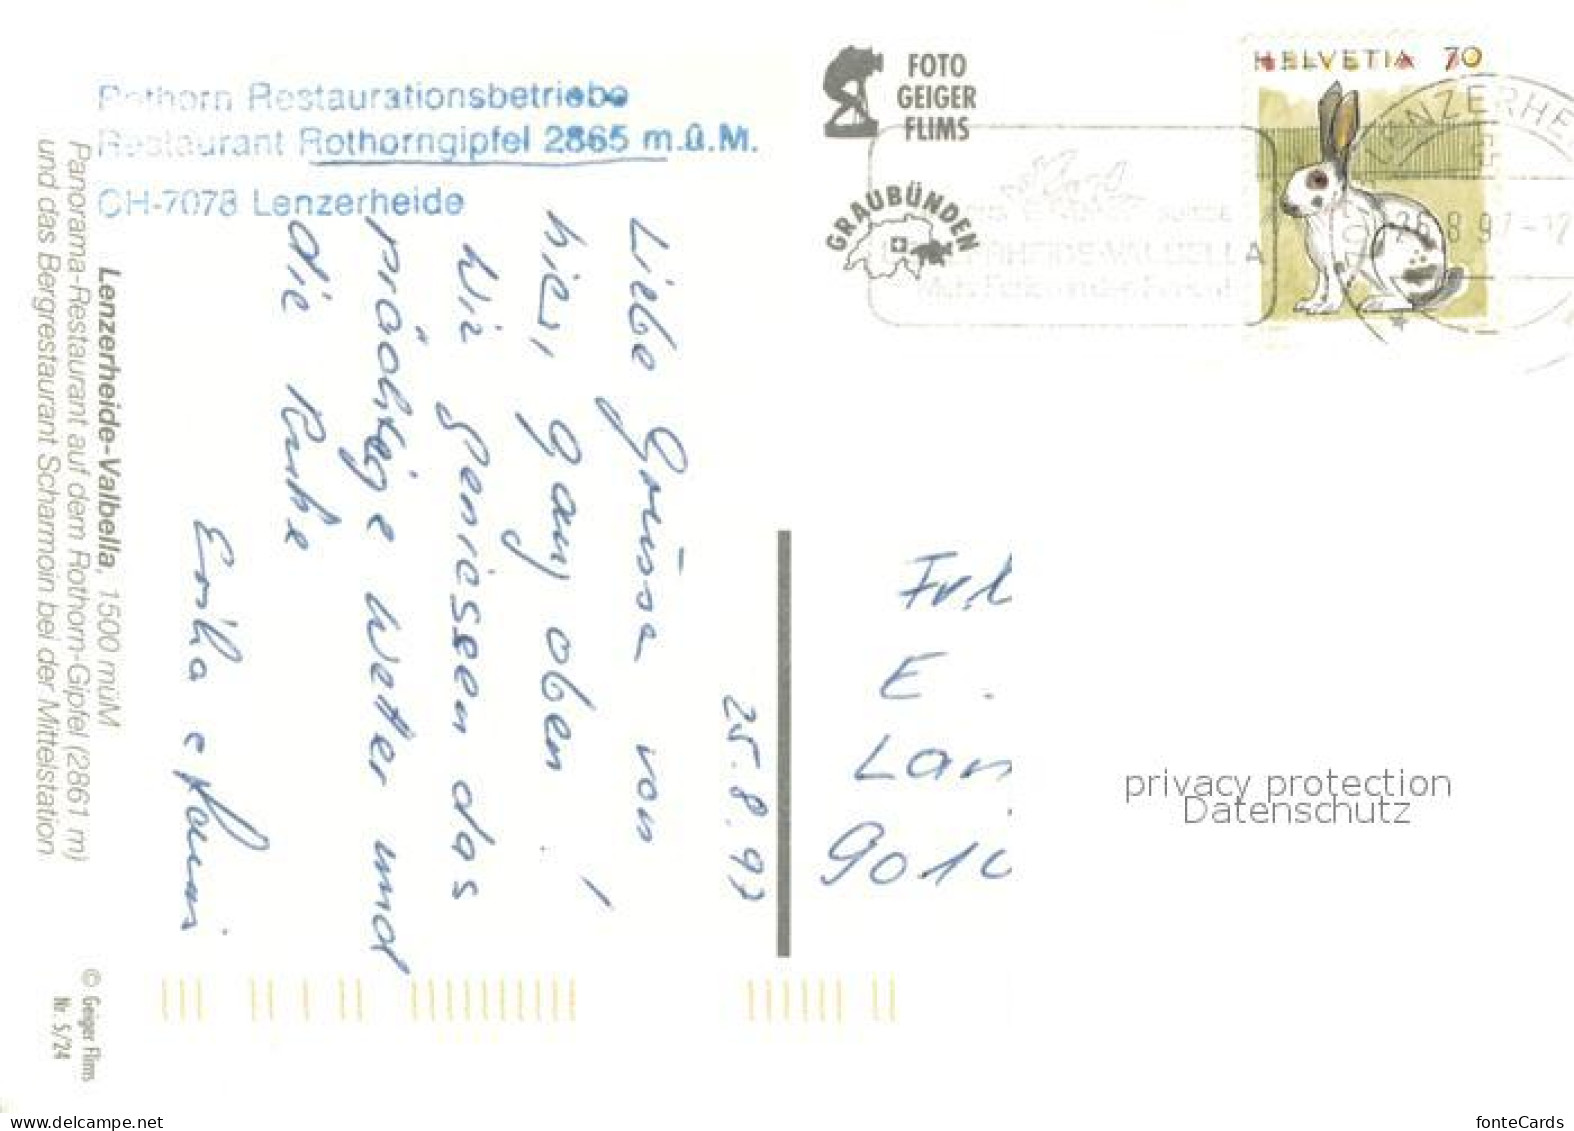 Rothorn Restaurationsbetriebe
Restaurant Rothorngipfel 2865 m.ü.M.
CH-7078 Lenzerheide
Lenzerheide-Valbella, 1500 müM
Panorama-Restaurant auf dem Rothorn-Gipfel (2861 m)
und das Bergrestaurant Scharmoin bei der Mittelstation
© Geiger Flims
Nr. 5/24
25.8.97
Liebe Grüsse von
hier, ganz oben!
Wir geniessen das
prächtige Wetter und
die Ruhe
Erika
FOTO
GEIGER
FLIMS
GRAUBÜNDEN
HELVETIA 70
LENZERHE
26.8.97-12
LENZERHEIDE-VALBELLA
Frl
E.
Lan
901
privacy protection
Datenschutz
www.delcampe.net
fonteCards